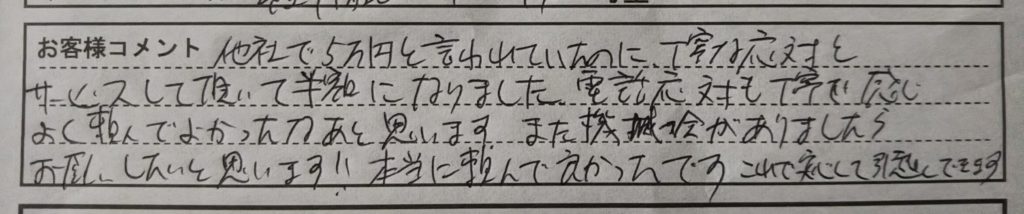 お客様コメント 他社で5万円と言われていたのに、丁寧な応対と
サービスして頂いて半額になりました。電話応対も丁寧で感じ
よく頼んでよかったなあと思います。また機会がありましたら
お願いしたいと思います!! 本当に頼んで良かったです これで安心して引越しできます